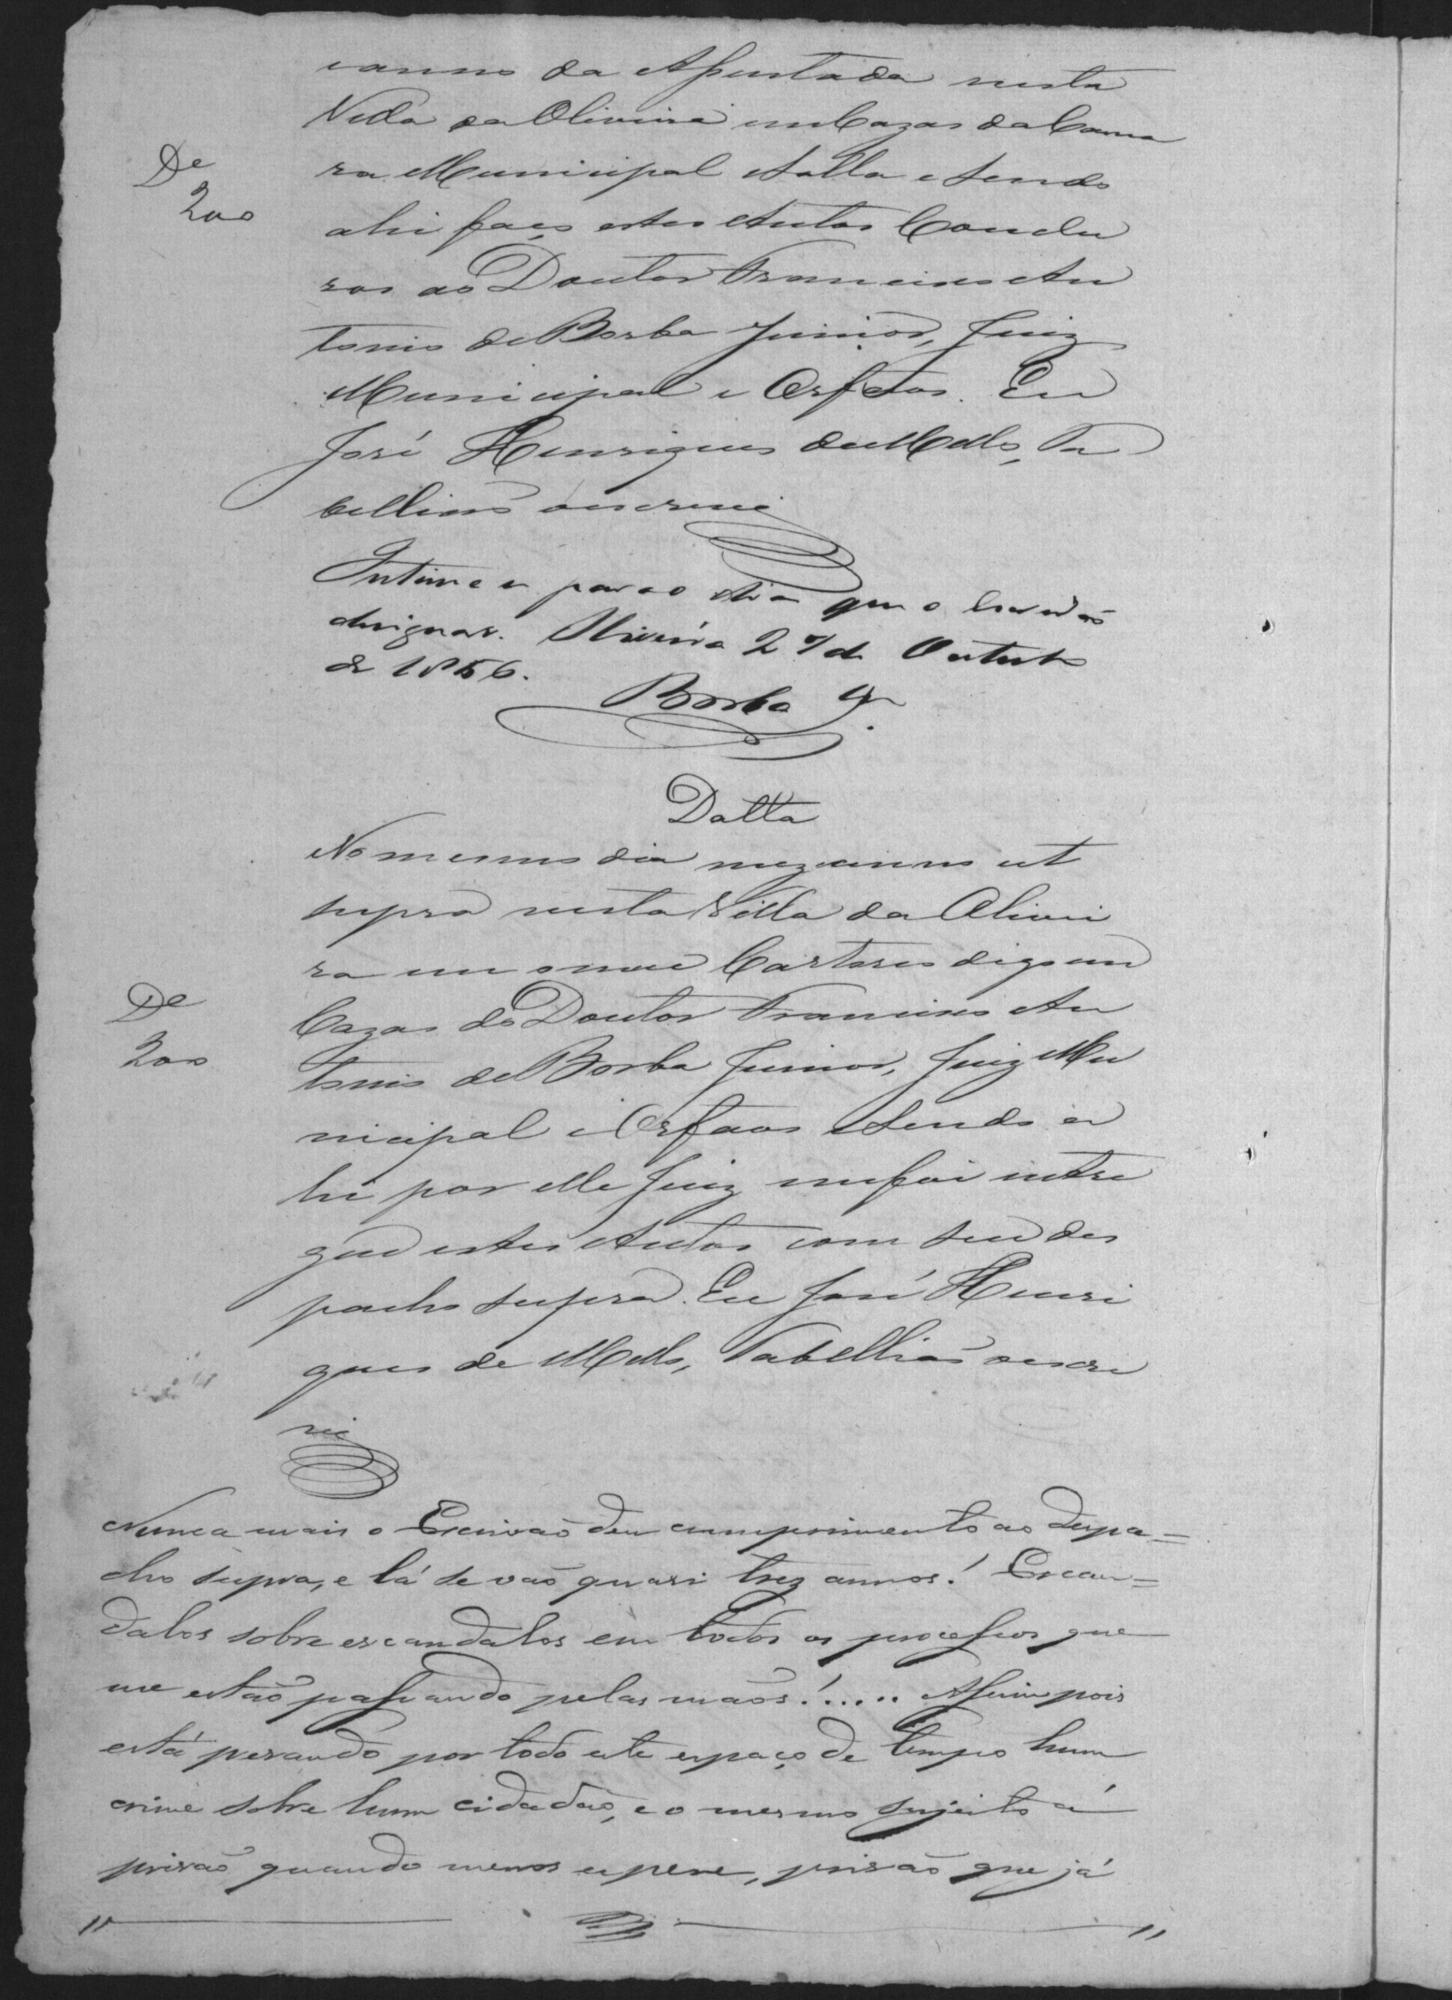 eanno da Apuntada nesta
Villa da Oliveira em Cazas da Cama
De
ra Municipal e Salla e sendo
200
ahi faço estes Autos Conclu
zos ao Doutor Francisco An
tonio de Borba Junior, Juiz
Municipal e Orfãos. Eu
José Henriques de Mello, Ta
bellião o escrevi
Intime-se para o dia que o Escrivão
designar. Oliveira 27 de Outubro
de 1856.
Borba Jr.
Datta
No mesmo dia mez e anno ut
supra nesta Villa da Olivei
ra em o meu Cartorio digo em
De
Cazas do Doutor Francisco An
200
tonio de Borba Junior, Juiz Mu
nicipal e Orfaos e sendo a
hi por elle Juiz me foi entre
gue estes Autos com seu des
pacho supra. Eu José Henri
ques de Mello, Tabellião o escre
vi
Nunca mais o Escrivão deu cumprimento ao despa=
cho supra, e lá se vão quasi trez annos! Escan=
dalos sobre escandalos em todos os processos que
me estão passando pelas mãos!..... Assim pois
está pezando por todo este espaço de tempo hum
crime sobre hum cidadão, e o mesmo sujeito á
prisão quando menos espere, prisão que já